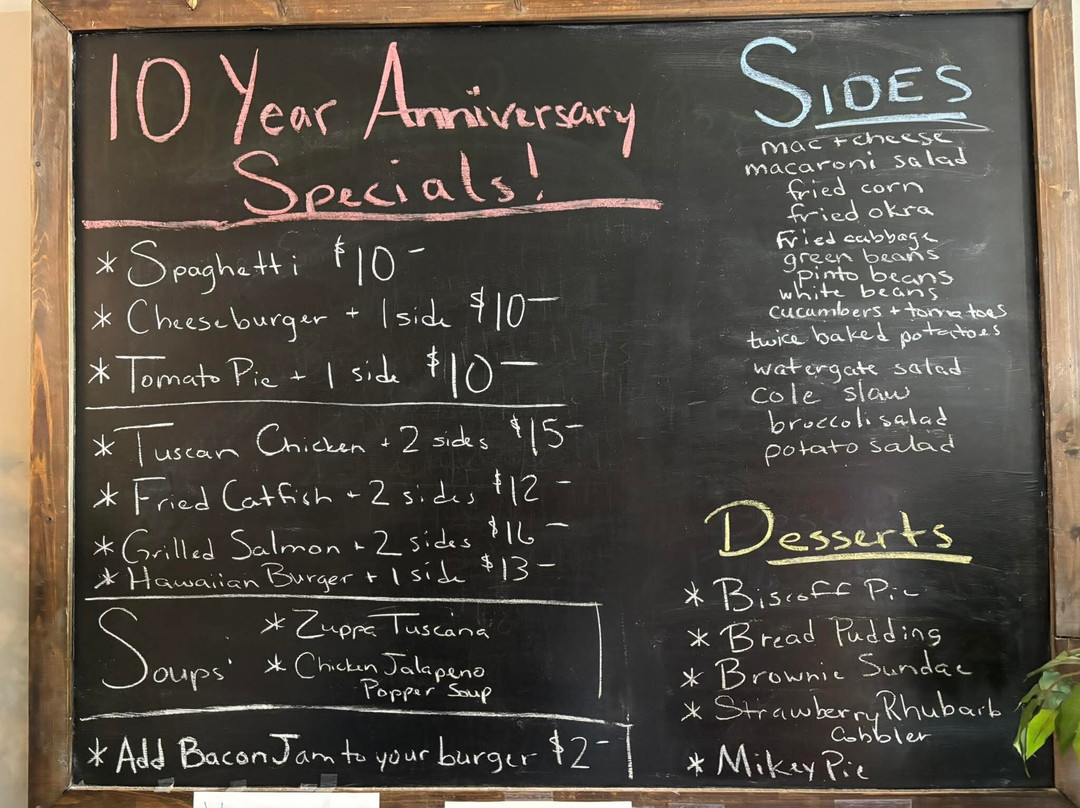 10 Year Anniversary
Specials!
* Spaghetti $10-
* Cheeseburger + 1 side $10-
* Tomato Pie + 1 side $10-
* Tuscan Chicken + 2 sides $15-
* Fried Catfish + 2 sides $12-
* Grilled Salmon + 2 sides $16-
* Hawaiian Burger + 1 side $13-
Soups
* Zuppa Tuscana
* Chicken Jalapeno
Popper Soup
* Add Bacon Jam to your burger $2-
SIDES
mac + cheese
macaroni salad
fried corn
fried okra
Fried cabbage
green beans
pinto beans
white beans
cucumbers + tomatoes
twice baked potatoes
watergate salad
cole slaw
broccoli salad
potato salad
Desserts
* Biscoff Pie
* Bread Pudding
* Brownie Sundae
* Strawberry Rhubarb
Cobbler
* Mikey Pie